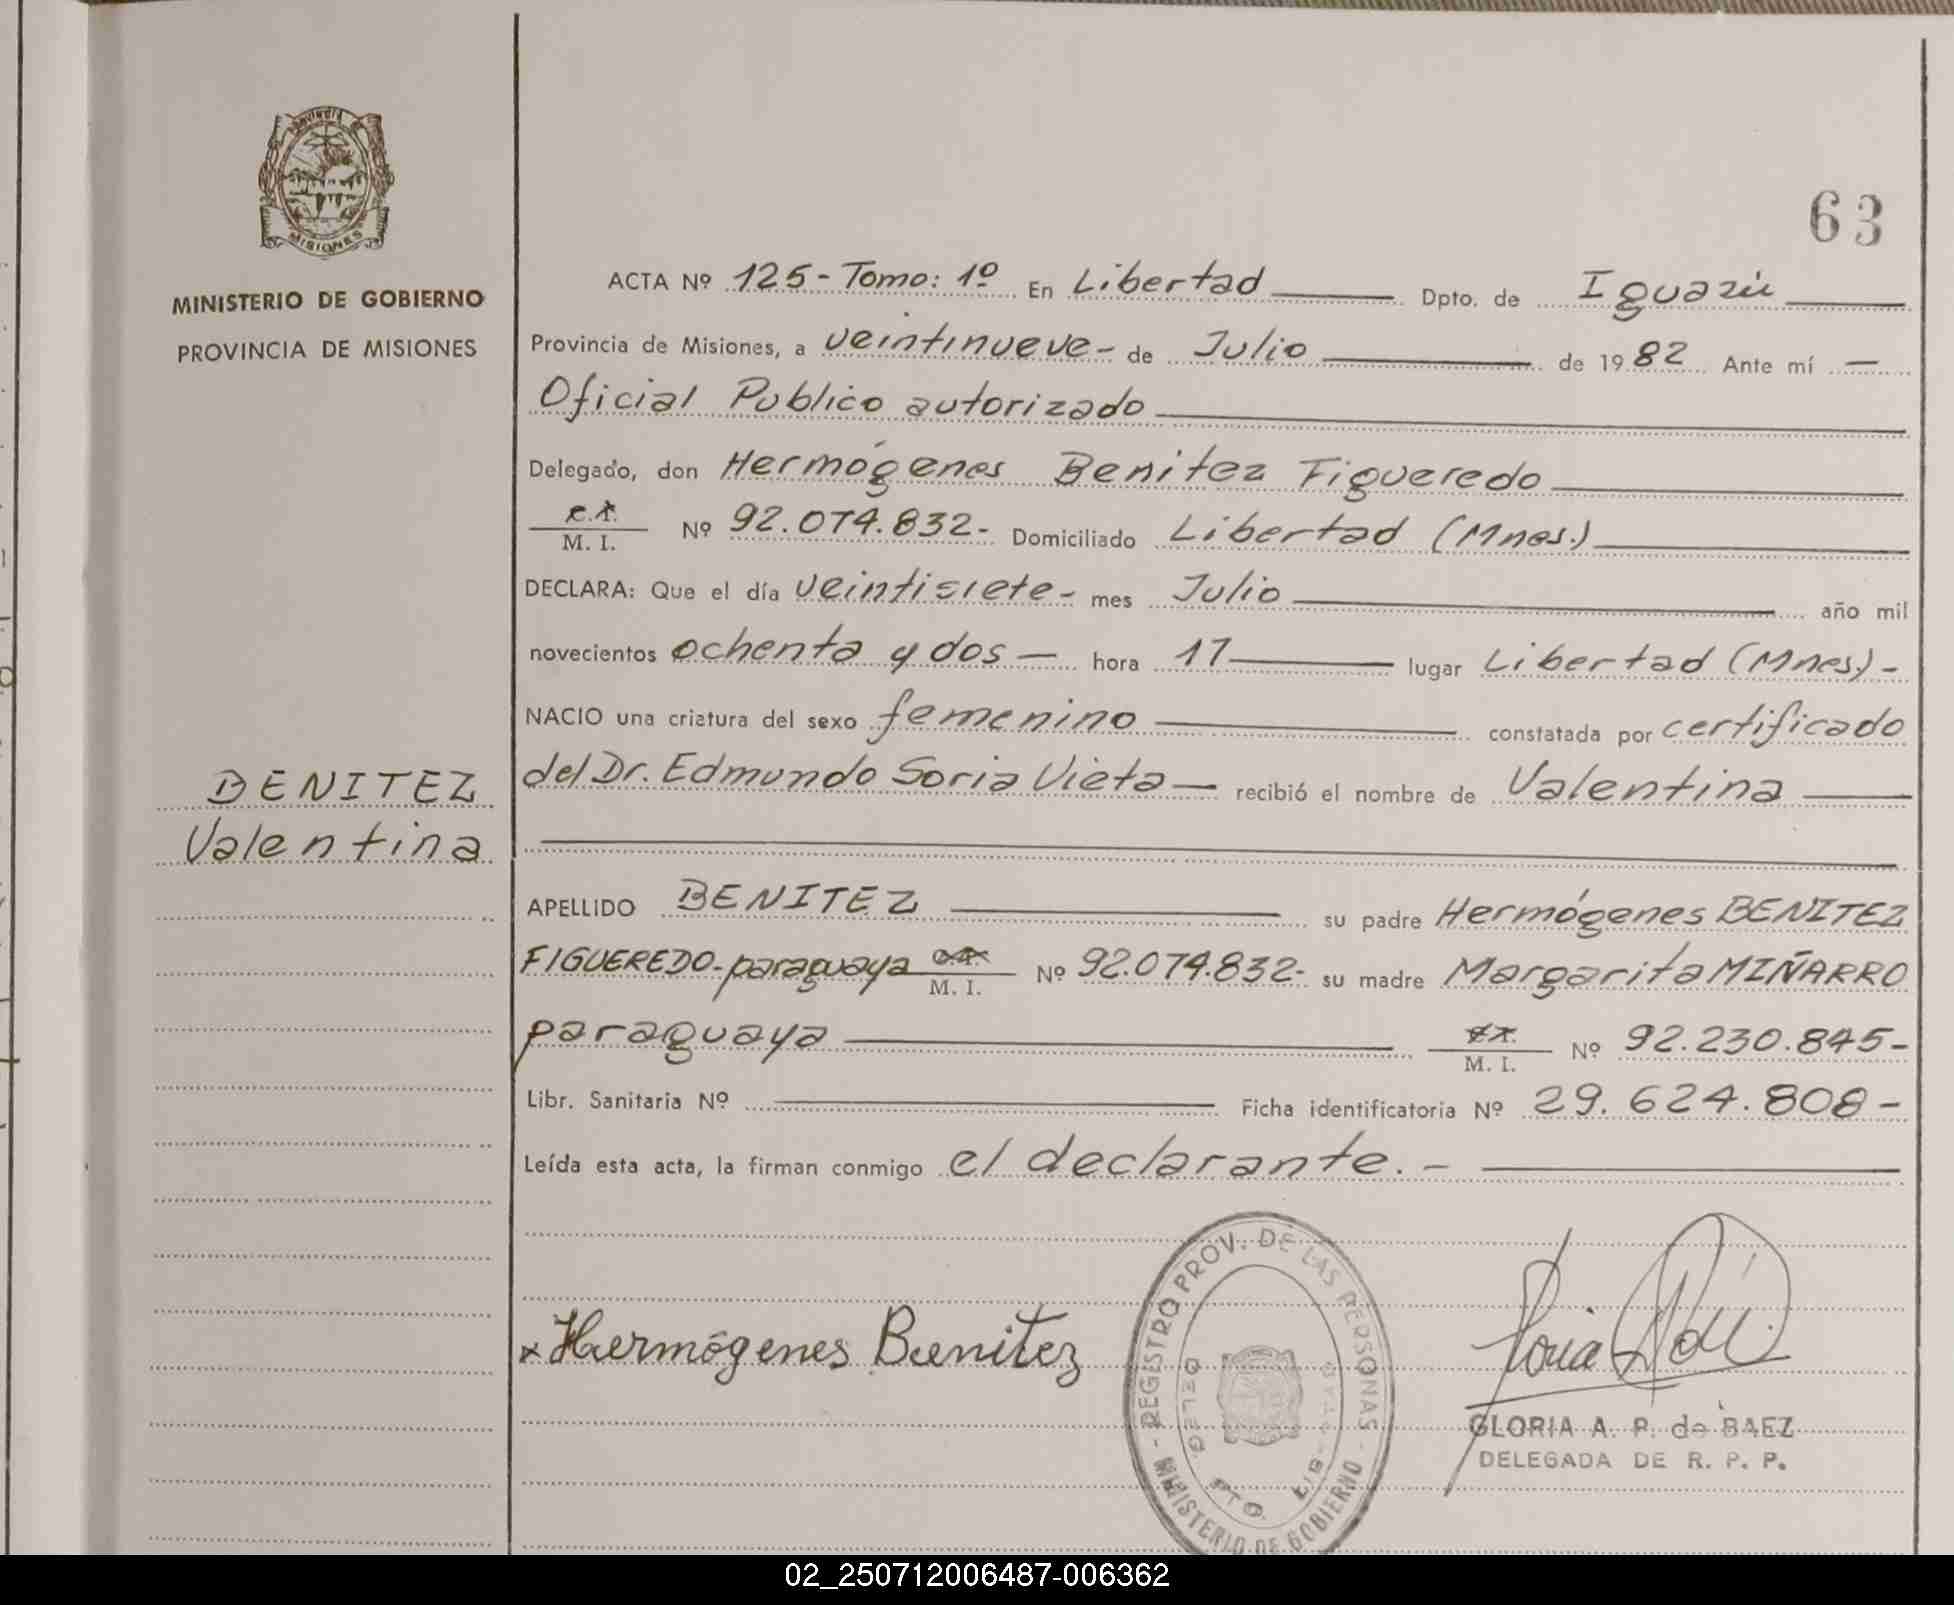 63
MINISTERIO DE GOBIERNO
PROVINCIA DE MISIONES
MISIONES
ACTA Nº 125- Tomo: 1º En Libertad Dpto. de Iguazú
Provincia de Misiones, a veintinueve- de Julio de 1982 Ante mí —
Oficial Publico autorizado
Delegado, don Hermógenes Benitez Figueredo
M. I. Nº 92.074.832- Domiciliado Libertad (Mnes.)
DECLARA: Que el día veintisiete- mes Julio año mil
novecientos ochenta y dos — hora 17 lugar Libertad (Mnes)-
NACIO una criatura del sexo femenino constatada por certificado
del Dr. Edmundo Soria Vieta — recibió el nombre de Valentina
BENITEZ
Valentina
APELLIDO BENITEZ su padre Hermógenes BENITEZ
FIGUEREDO-paraguaya M. I. Nº 92.074.832- su madre Margarita MIÑARRO
paraguaya M. I. Nº 92.230.845-
Libr. Sanitaria Nº Ficha identificatoria Nº 29.624.808-
Leída esta acta, la firman conmigo el declarante.-
x Hermógenes Benitez
REGISTRO PROV. DE LAS PERSONAS - MINISTERIO DE GOBIERNO -
DELEG. PTO.
GLORIA A. P. de BAEZ
DELEGADA DE R. P. P.
02_250712006487-006362